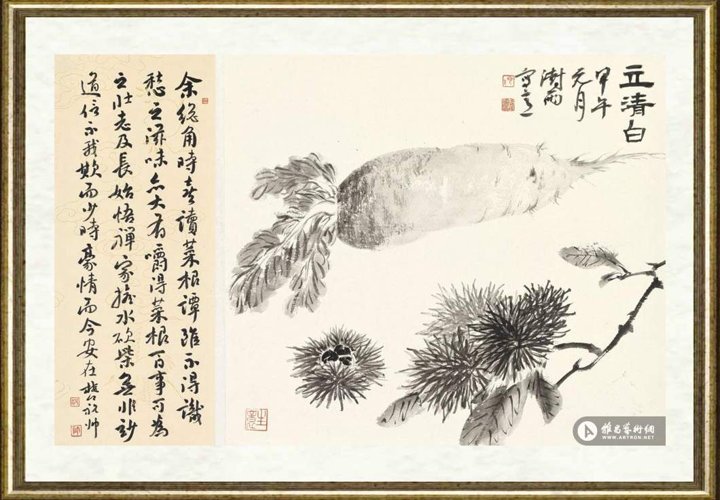 立清白
甲午
元月
澍雨
余總角時喜讀菜根譚雖不得識
愁之滋味亦大有嚼得菜根百事可為
之壯志及長始悟禪家擔水砍柴無非妙
道信不我欺而少時豪情而今安在
祝帅
雅昌藝術網
WWW.ARTRON.NET